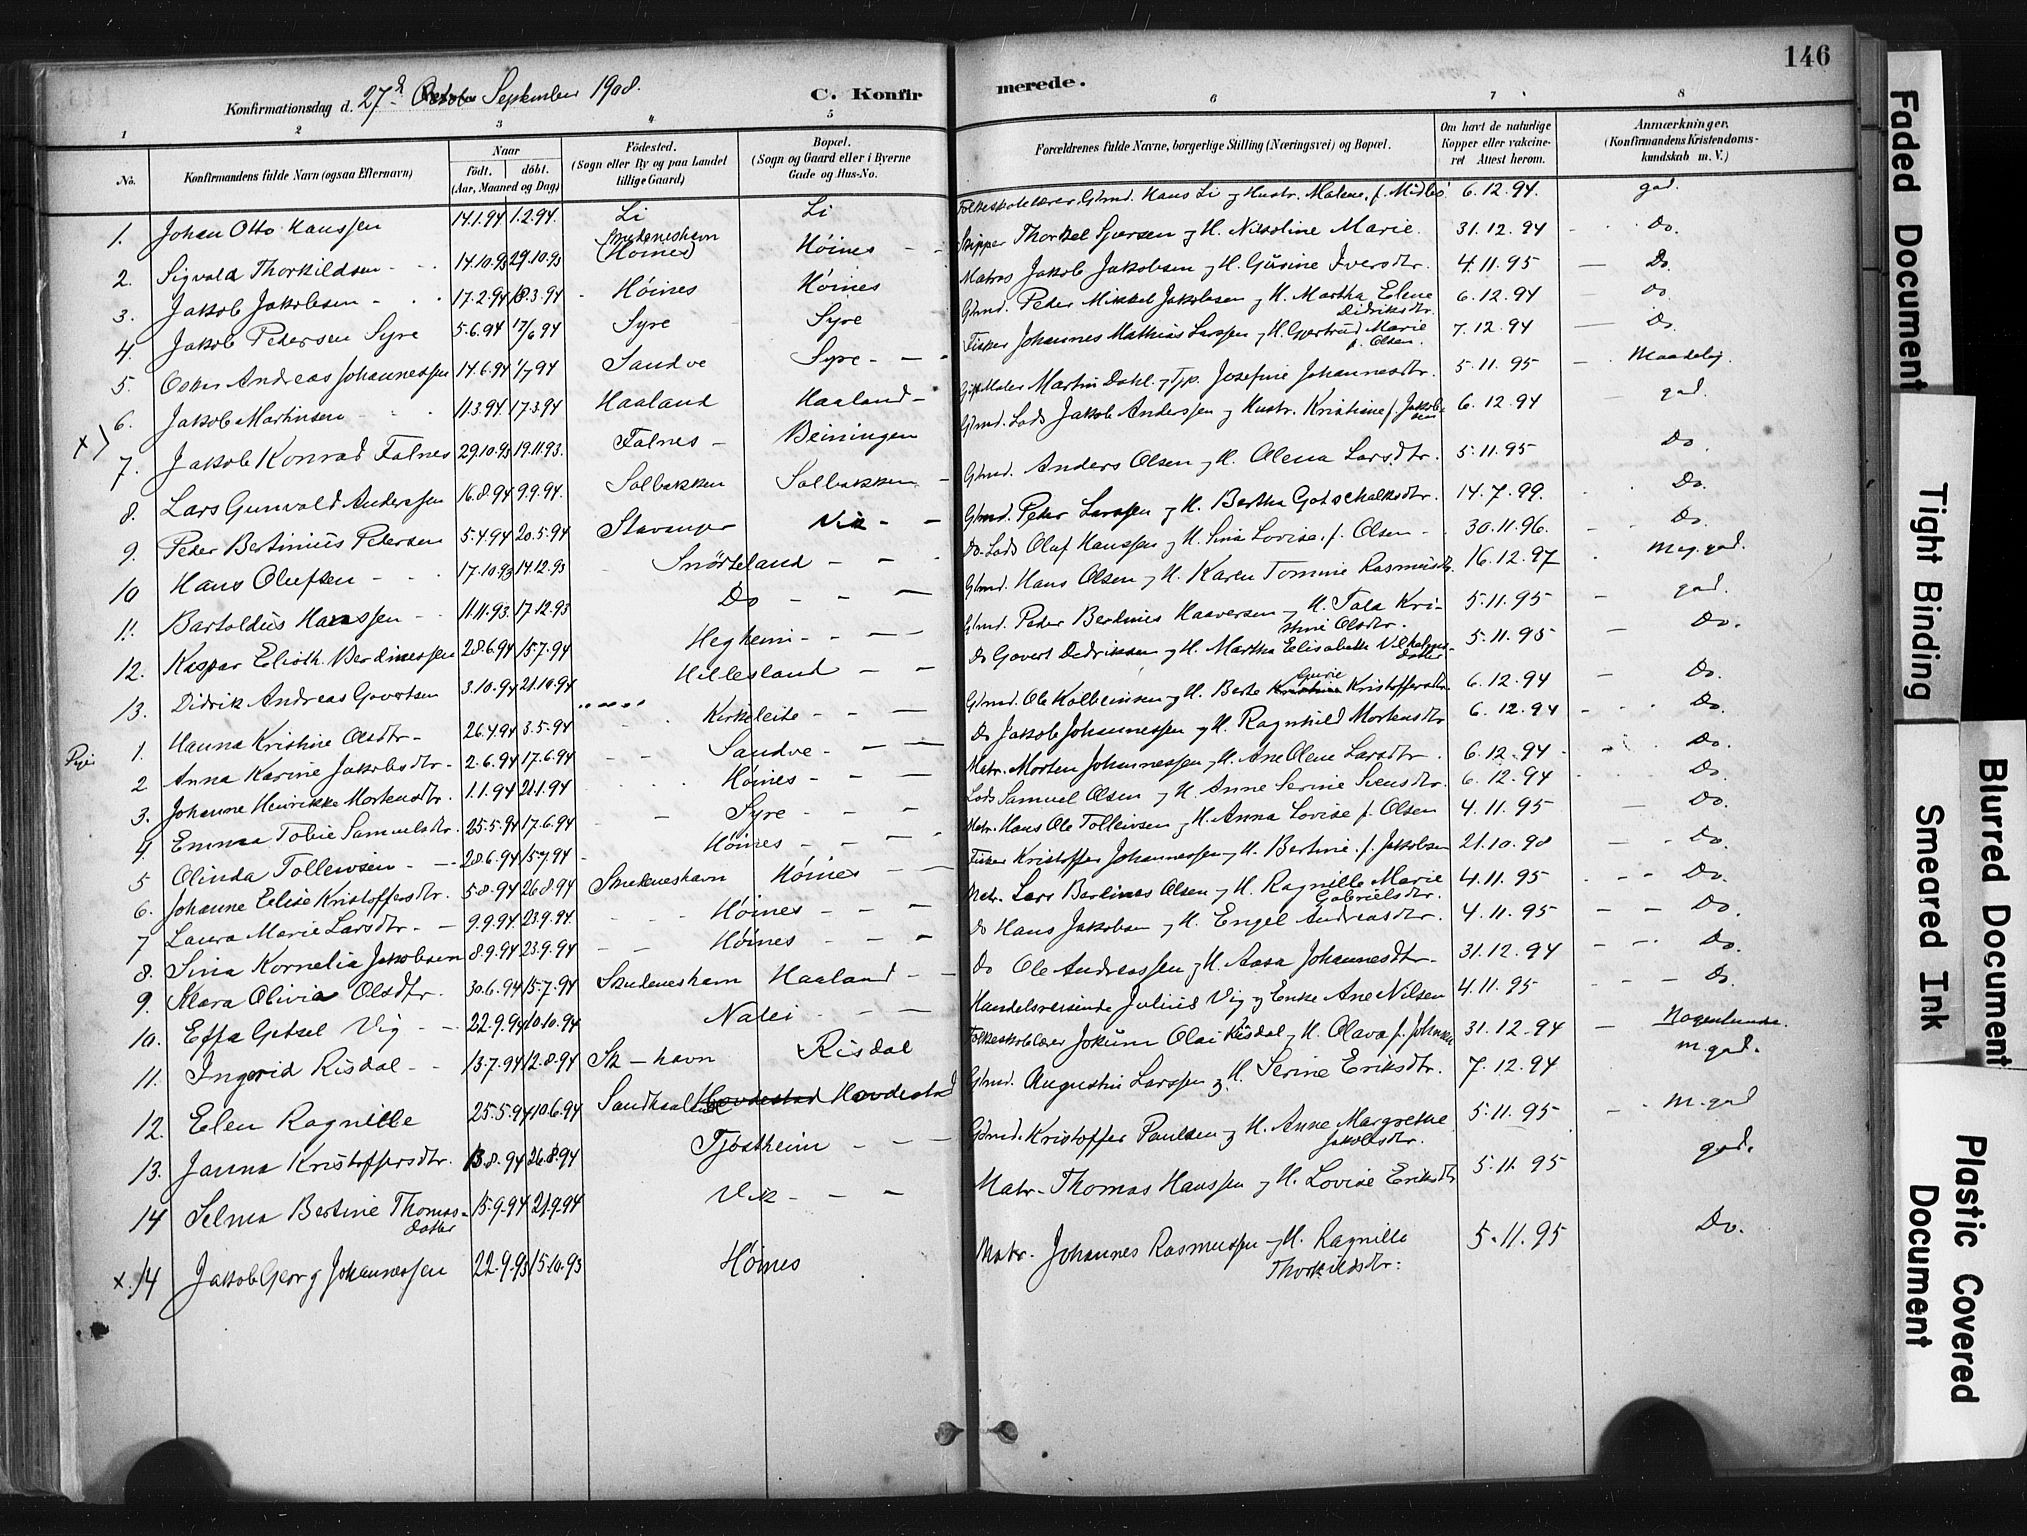 146
Konfirmationsdag d. 27d September 1908.
C. Konfirmerede.
1 2 3 4 5 6 7 8
No. Konfirmandens fulde Navn (ogsaa Efternavn) Naar født. døbt. (Aar, Maaned og Dag) Fødested. (Sogn eller By og paa Landet tillige Gaard) Bopæl. (Sogn og Gaard eller i Byerne Gade og Hus-No. Forældrenes fulde Navne, borgerlige Stilling (Næringsvei) og Bopæl. Om havt de naturlige Kopper eller vakcineret Attest herom. Anmærkninger. (Konfirmandens Kristendomskundskab m. V.)
1. Johan Otto Hanssen 14.1.94 1.2.94. Li Li Folkeskolelærer, Gbmd. Hans Li og Hustr. Malene, f. Midbø 6.12.94. god.
2. Sigvald Thorkildsen 14.10.93 29.10.93 Skudeneshavn (Høines) Høines Skipper Thorkel Sjursen og H. Nikoline Marie. 31.12.94 Do.
3. Jakob Jakobsen 17.2.94 18.3.94 Høines Høines Matros Jakob Jakobsen og H. Gusine Iversdtr. 4.11.95 Do
4. Jakob Pedersen Syre 5.6.94 17/6 94 Syre Syre Gbmd. Peder Mikkel Jakobsen og H. Martha Elene Didriksdtr. 6.12.94 Do
5. Oskar Andreas Johannessen 14.6.94 1/7 94 Sandve Syre Fisker Johannes Mathias Larssen og H. Gjertrud Marie f. Olsen. 7.12.94 Do.
6. Jakob Martinsen 11.3.94 17.3.94 Haaland Haaland Martin Dahl og Josefine Johannesdtr. 5.11.95 Maadelig
x) 7. Jakob Konrad Falnes 29.10.93 19.11.93. Falnes Beiningen Gbmd. Lods Jakob Anderssen og Hustr. Kristine f. Jakobsen 6.12.94 god.
8. Lars Gunvald Anderssen 16.8.94 9.9.94. Solbakken Solbakken Gbmd. Anders Olsen og H. Olena Larsdtr. 5.11.95 Do
9. Peder Bertinius Pedersen 5.4.94 20.5.94 Stavanger Vik Gbmd. Peder Larssen og H. Bertha Gotschalksdtr. 14.7.99. Do.
10 Hans Olufsen 17.10.93 14.12.93 Snørteland Do. Lods Oluf Hanssen og H. Sina Lovise, f. Olsen 30.11.96. Do.
11. Bartoldus Hanssen 11.11.93. 17.12.93 Do Gbmd. Hans Olsen og H. Karen Tomine Rasmusdtr. 16.12.97 Meg. god.
12. Kaspar Elioth Berdinessen 28.6.94 15.7.94 Hegheim Gbmd. Peder Berdines Haaversen og H. Tala Kristine Olsdtr. 5.11.95 god.
13. Didrik Andreas Govertsen 3.10.94 21.10.94 Hillesland Do Govert Didriksen og H. Martha Elisabeth Vilhelmsdatter 5.11.95 Do.
Piger 1. Hanna Kristine Olsdtr. 26.4.94 3.5.94 Kirkeleite Gbmd. Ole Kolbeinsen og H. Berte Gurie Kristoffersdtr. 6.12.94 Do.
2 Anna Karine Jakobsdtr. 2.6.94 17.6.94 Sandve Do Jakob Johannessen og H. Ragnhild Mortensdtr 6.12.94 Do.
3. Johanne Henrikke Mortensdtr. 1.1.94 21.1.94 Høines Matr. Morten Johannessen og H. Ane Olene Larsdtr 6.12.94 Do.
4. Emma Tobie Samuelsdtr. 25.5.94 17.6.94 Syre Lods Samuel Olsen og H. Anne Serine Svensdtr. 6.12.94 Do.
5 Olinda Tolleivsen 28.6.94 15.7.94 Høines Matr. Hans Ole Tolleivsen og H. Anna Lovise f. Olsen 4.11.95 Do.
6. Johanne Elise Kristoffersdtr. 5.8.94 26.8.94 Skudeneshavn Høines Fisker Kristoffer Johannessen og H. Bertine f. Jakobsen 21.10.98 Do.
7 Laura Marie Larsdtr. 9.9.94 23.9.94. Høines Matr. Lars Berdines Olsen og H. Ragnille Marie Gabrielsdtr. 4.11.95 Do.
8. Sina Kornelia Jakobsen 8.9.94 23.9.94 Høines Do Hans Jakobsen og H. Engel Andreasdtr. 4.11.95 Do.
9. Klara Olivia Olsdtr. 30.6.94 15.7.94 Skudeneshavn Haaland Do Ole Andreassen og H. Aasa Johannesdtr. 31.12.94 Do.
10. Effa Getsel Vig 22.9.94 10.10.94 Nalei Handelsreisende Julius Vig og Enke Ane Nilsen 4.11.95 Do.
11. Ingerid Risdal 13.7.94 12.8.94 Sk-havn Risdal Folkeskolelærer Jokum Olai Risdal og H. Olava f. Johnsen 31.12.94 Nogenlunde.
12. Elen Ragnille 25.5.94 10.6.94 Sandhaaland Hovdestad Gbmd. Augustin Larssen og H. Serine Eriksdtr. 7.12.94 m. god.
13. Janna Kristoffersdtr. 13.8.94 26.8.94 Tjøstheim Gbmd. Kristoffer Paulsen og H. Anne Margrethe Jakobsdtr. 5.11.95 M. god
14 Selma Bertine Thomasdatter 15.9.94 21.9.94 Vik Matr. Thomas Hanssen og H. Lovise Eriksdtr 5.11.95 god.
x.) 14 Jakob Georg Johannessen 22.9.93 15.10.93 Høines Matr. Johannes Rasmussen og H. Ragnille Thorkildsdtr. 5.11.95 Do.
Faded Document
Tight Binding
Blurred Document
Smeared Ink
Plastic Covered Document